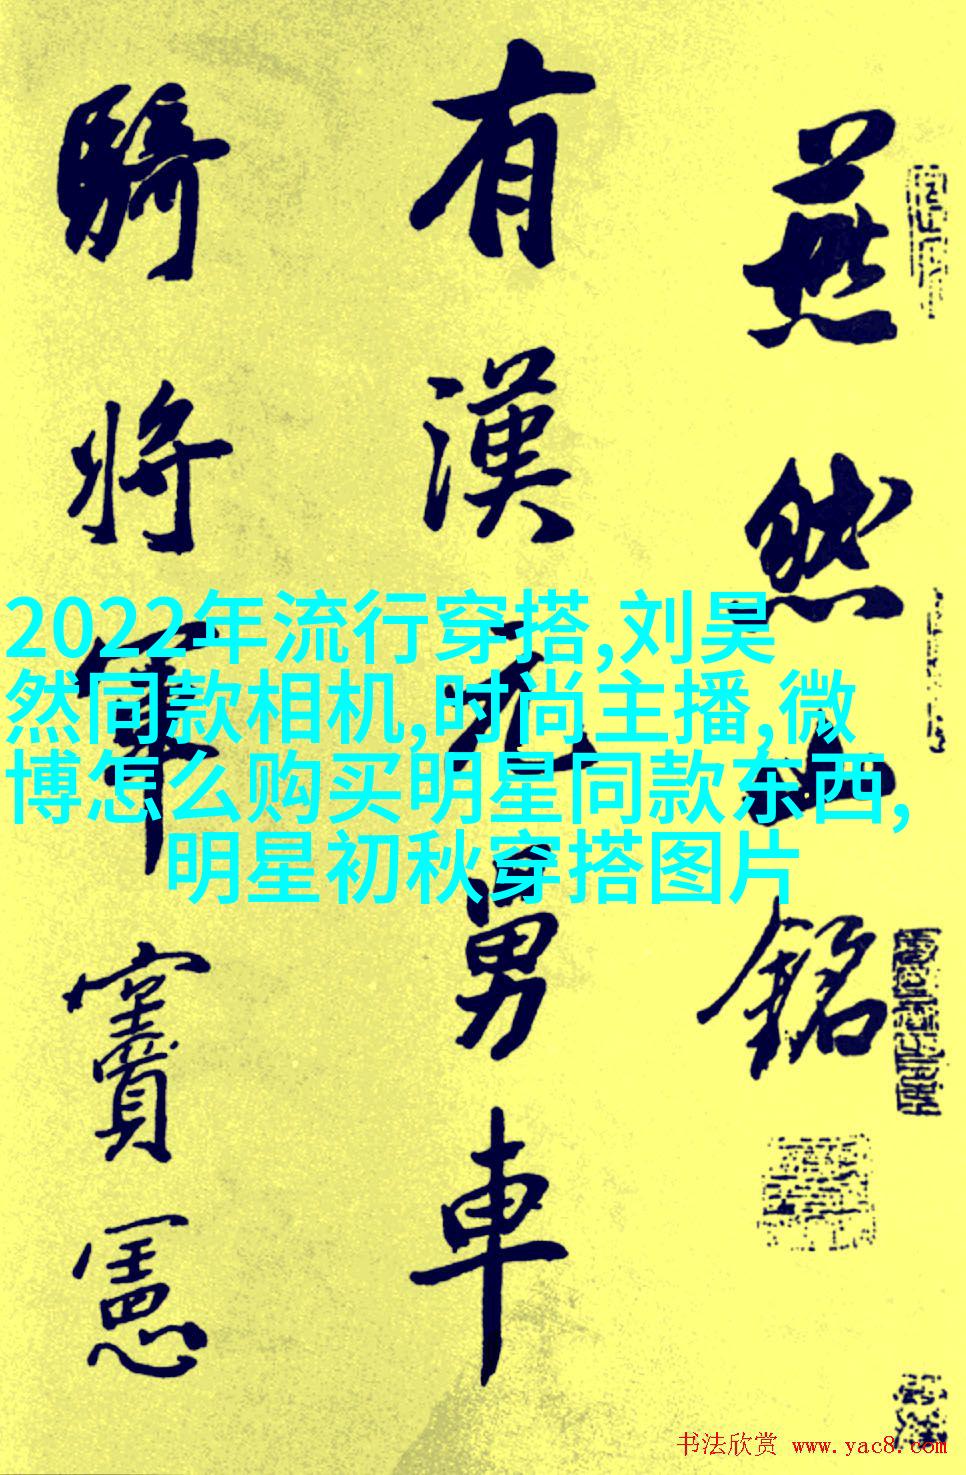 燕然山銘
有漢元舅車
騎將軍竇憲
2022年流行穿搭,刘昊
然同款相机,时尚主播,微
博怎么购买明星同款东西,
明星初秋穿搭图片
书法欣赏 www.yac8.com